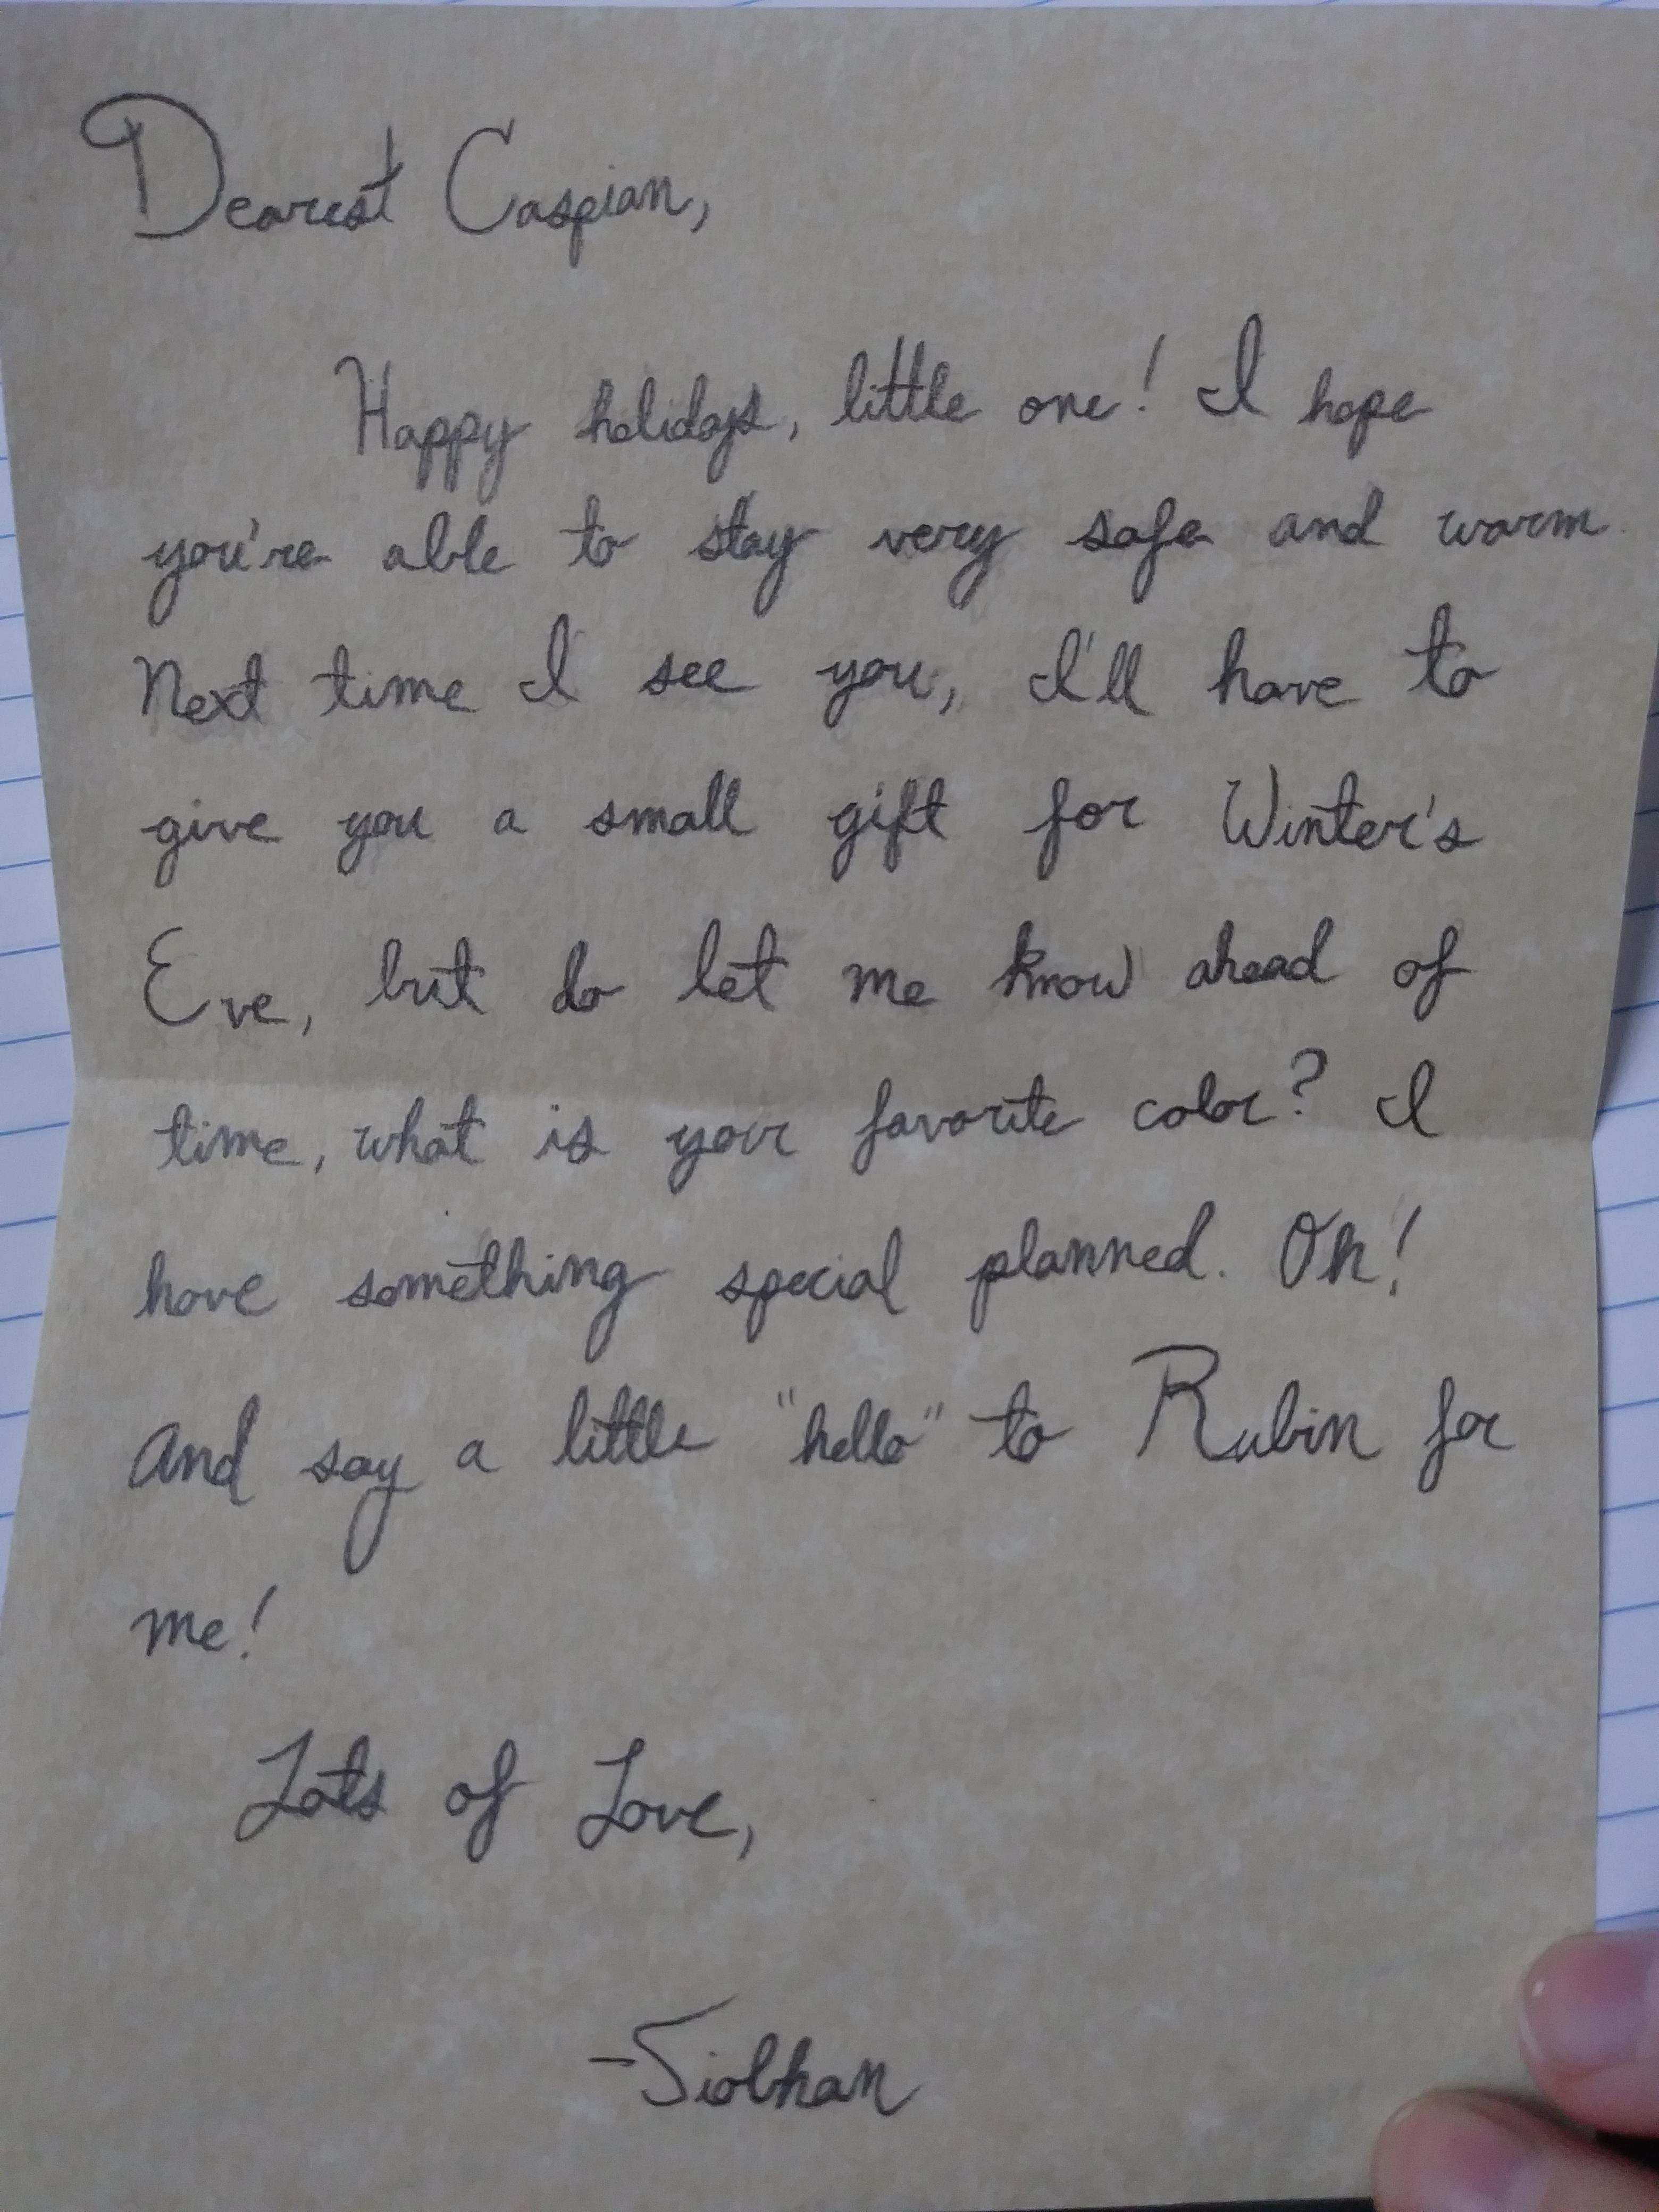 Dearest Caspian,
Happy holidays, little one! I hope
you're able to stay very safe and warm.
Next time I see you, I'll have to
give you a small gift for Winter's
Eve, but do let me know ahead of
time, what is your favorite color? I
have something special planned. Oh!
And say a little "hello" to Rubin for
me!
Lots of Love,
-Siobhan